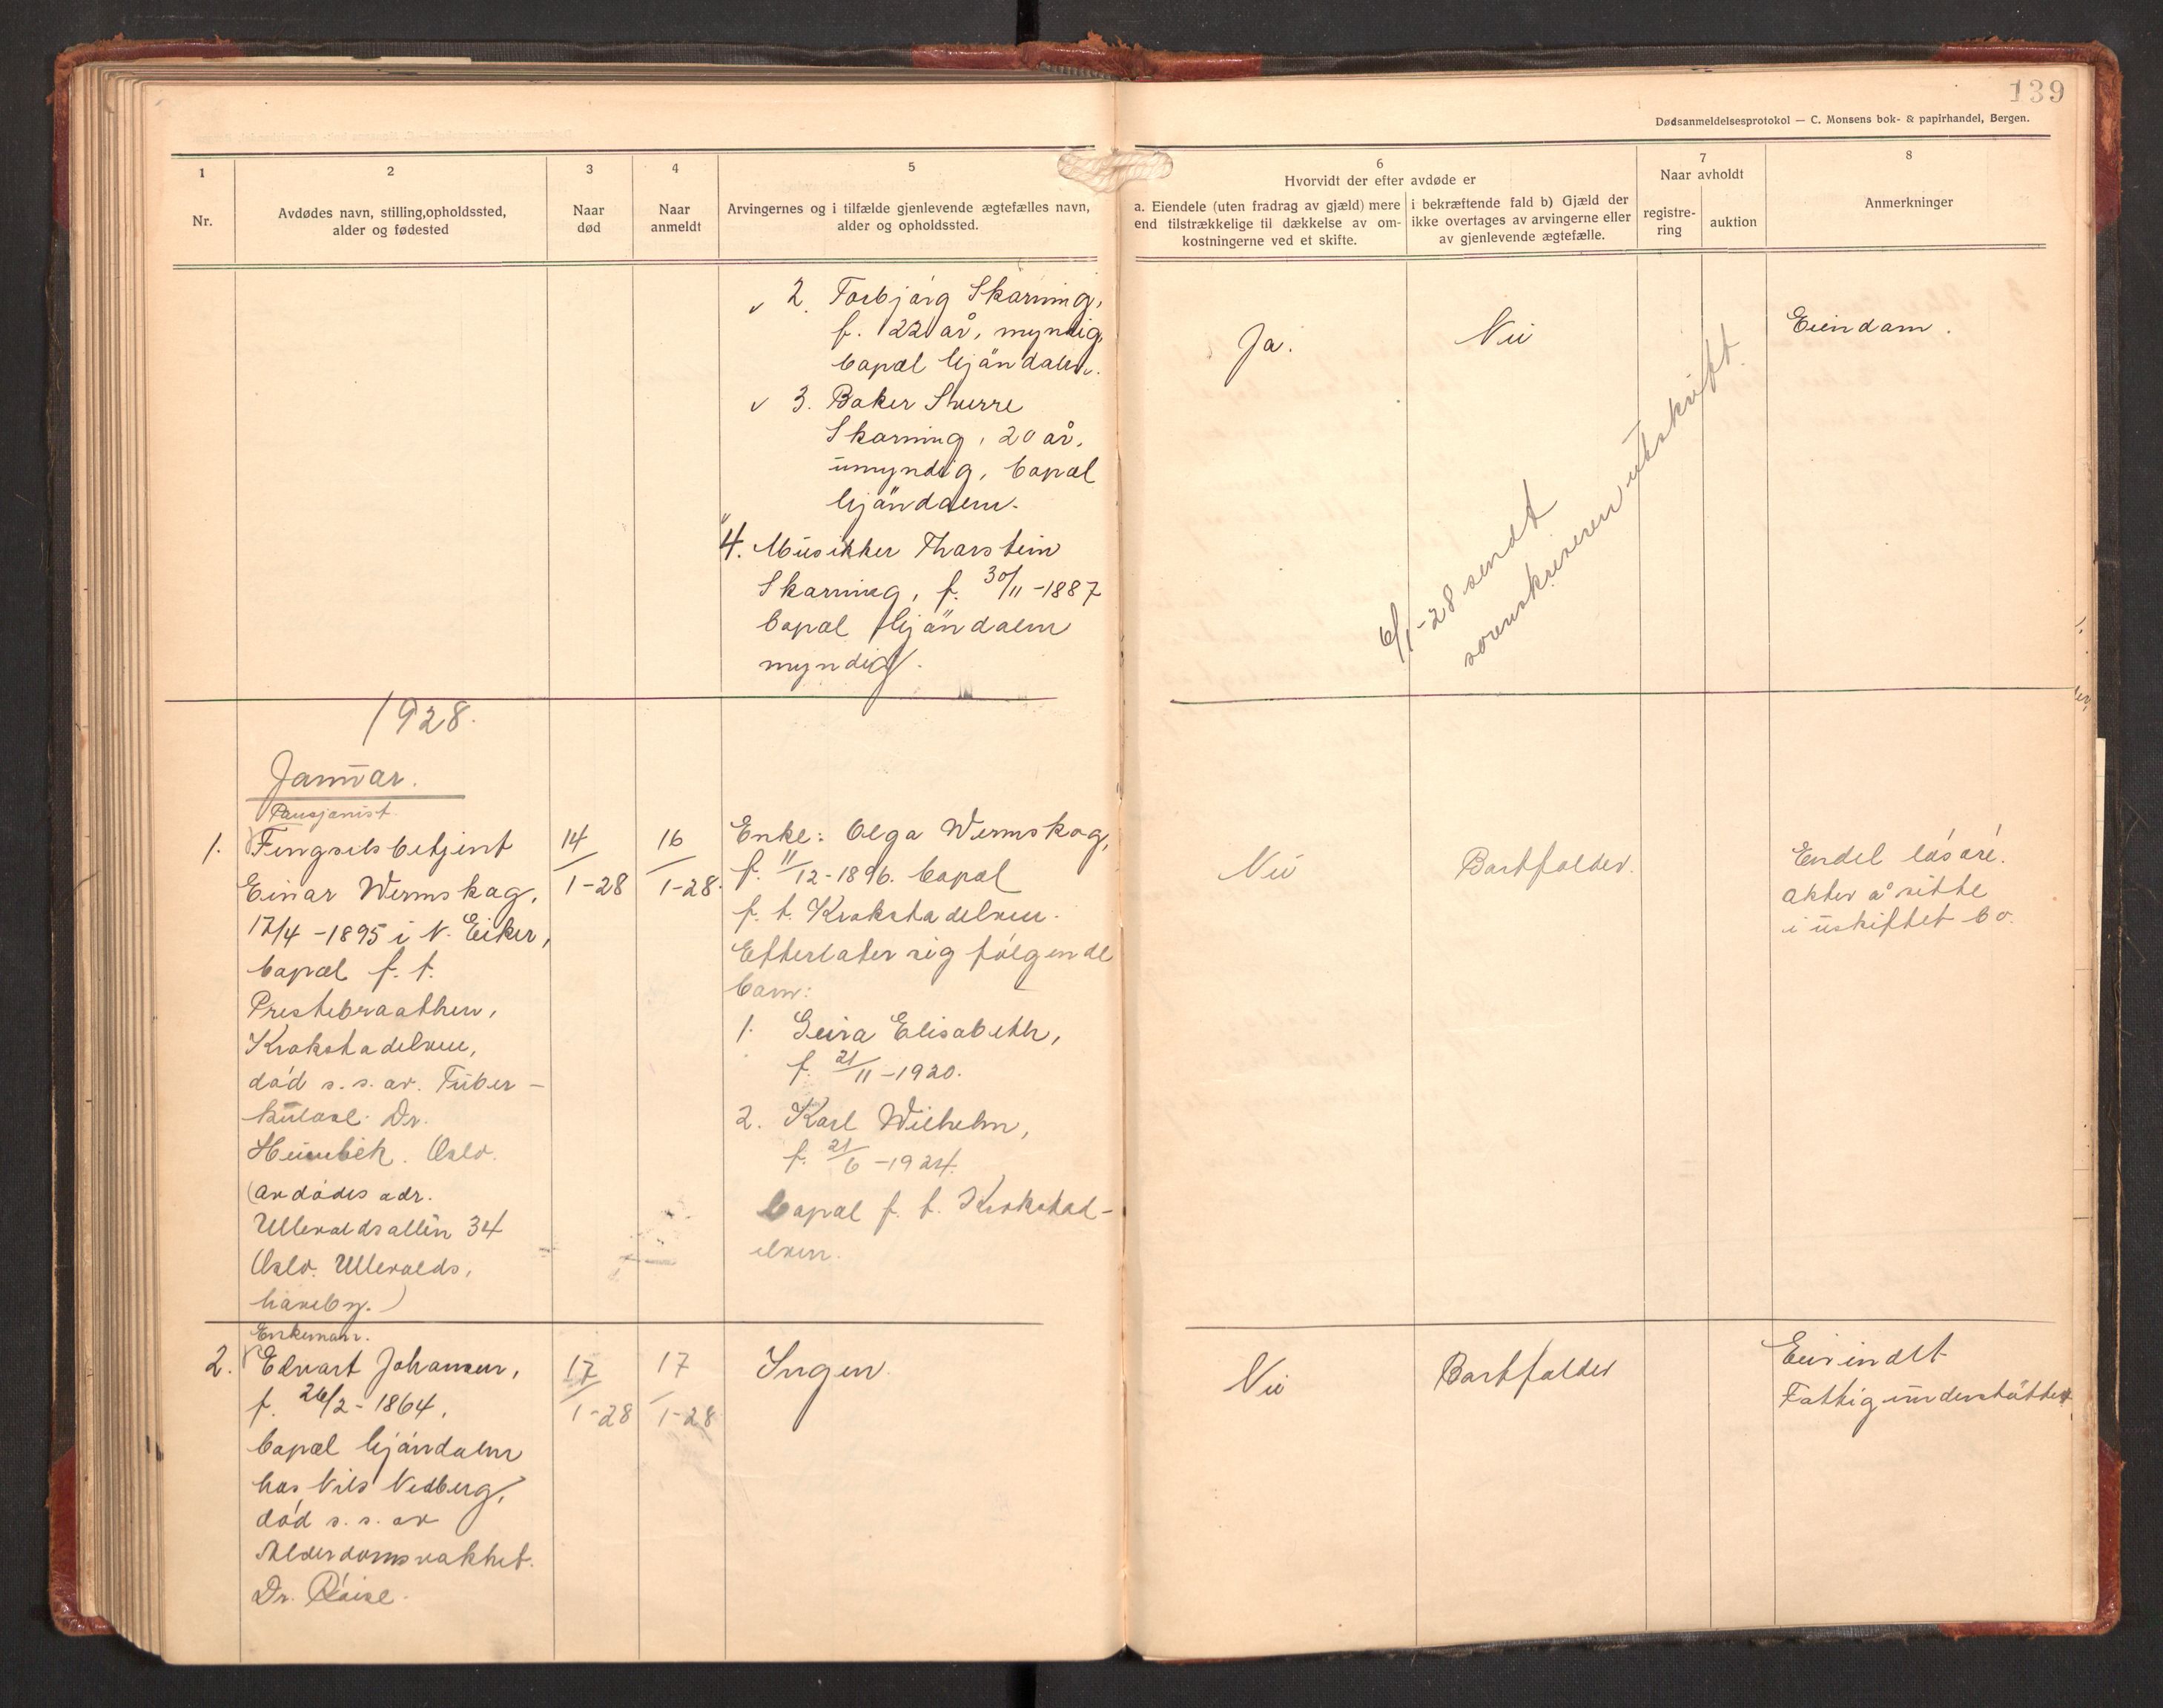 139
Dødsanmeldelsesprotokol — C. Monsens bok- & papirhandel, Bergen.
1
Nr.
2
Avdødes navn, stilling,opholdssted,
alder og fødested
3
Naar
død
4
Naar
anmeldt
5
Arvingernes og i tilfælde gjenlevende ægtefælles navn,
alder og opholdssted.
6
Hvorvidt der efter avdøde er
a. Eiendele (uten fradrag av gjæld) mere
end tilstrækkelige til dækkelse av om-
kostningerne ved et skifte.
i bekræftende fald b) Gjæld der
ikke overtages av arvingerne eller
av gjenlevende ægtefælle.
7
Naar avholdt
registre-
ring
auktion
8
Anmerkninger
2. Torbjørg Skarning,
f. 22 år, myndig,
bopæl Mjøndalen.
3. Baker Sverre
Skarning, 20 år,
umyndig, bopæl
Mjøndalen.
4. Musikker Thorstein
Skarning, f. 30/11-1887
bopæl Mjøndalen
myndig.
Ja.
Nei
Eiendom.
6/1-28 sendt
sorenskriveren utskrift.
1928.
Januar.
Pensjonist
1. Fengselsbetjent
Einar Wermskog,
17/4-1895 i N. Eiker,
bopæl f. t.
Prestebraathen,
Krokstadelven,
død s. s. av. Tuber-
kulose. Dr.
Heimbek. Oslo.
(avdødes adr.
Ullevoldsallen 34
Oslo. Ullevolds,
haveby.)
14/1-28
16/1-28.
Enke: Olga Wermskog,
f. 11/12-1896. bopæl
f. t. Krokstadelven.
Efterlater sig følgende
barn:
1. Geira Elisabeth,
f. 21/11-1920.
2. Karl Wilhelm,
f. 21/6-1924.
bopæl f. t. Krokstad-
elven.
Nei
Bortfalder.
Endel løsøre.
Akter å sitte
i uskiftet bo.
Enkemann.
2. Edvart Johansen,
f. 26/2-1864,
bopæl Mjøndalen
hos Nils Vedberg,
død s. s. av
Alderdomsvakhet.
Dr.
17/1-28
17/1-28
Ingen
Nei
Bortfalder
Eier indet
Fattigunderstøttet